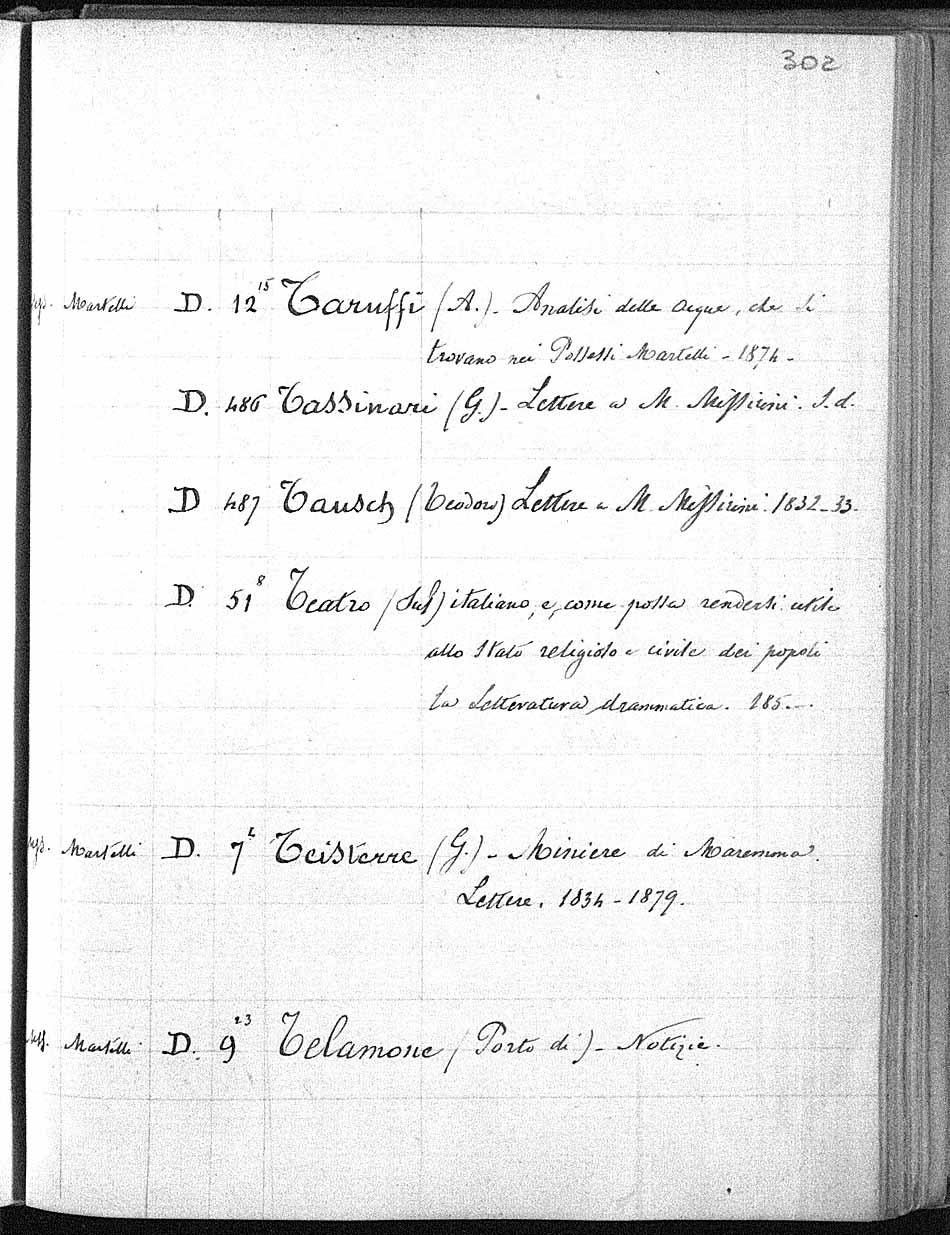 302
Martelli D. 12 15 Taruffi (A.) - Analisi delle acque, che si
trovano nei Possessi Martelli - 1874 -
D. 486 Tassinari (G.) - Lettere a M. Missirini. S. d.
D 487 Tausch (Teodoro) Lettere a M. Missirini. 1832-33.
D. 51 8 Teatro (Sul) italiano, e, come possa rendersi utile
allo Stato religioso e civile dei popoli
la Letteratura drammatica. 185...
Martelli D. 7 4 Teisterre (G.) - Miniere di Maremma.
Lettere. 1834 - 1879.
Martelli D. 9 23 Telamone (Porto di) - Notizie.